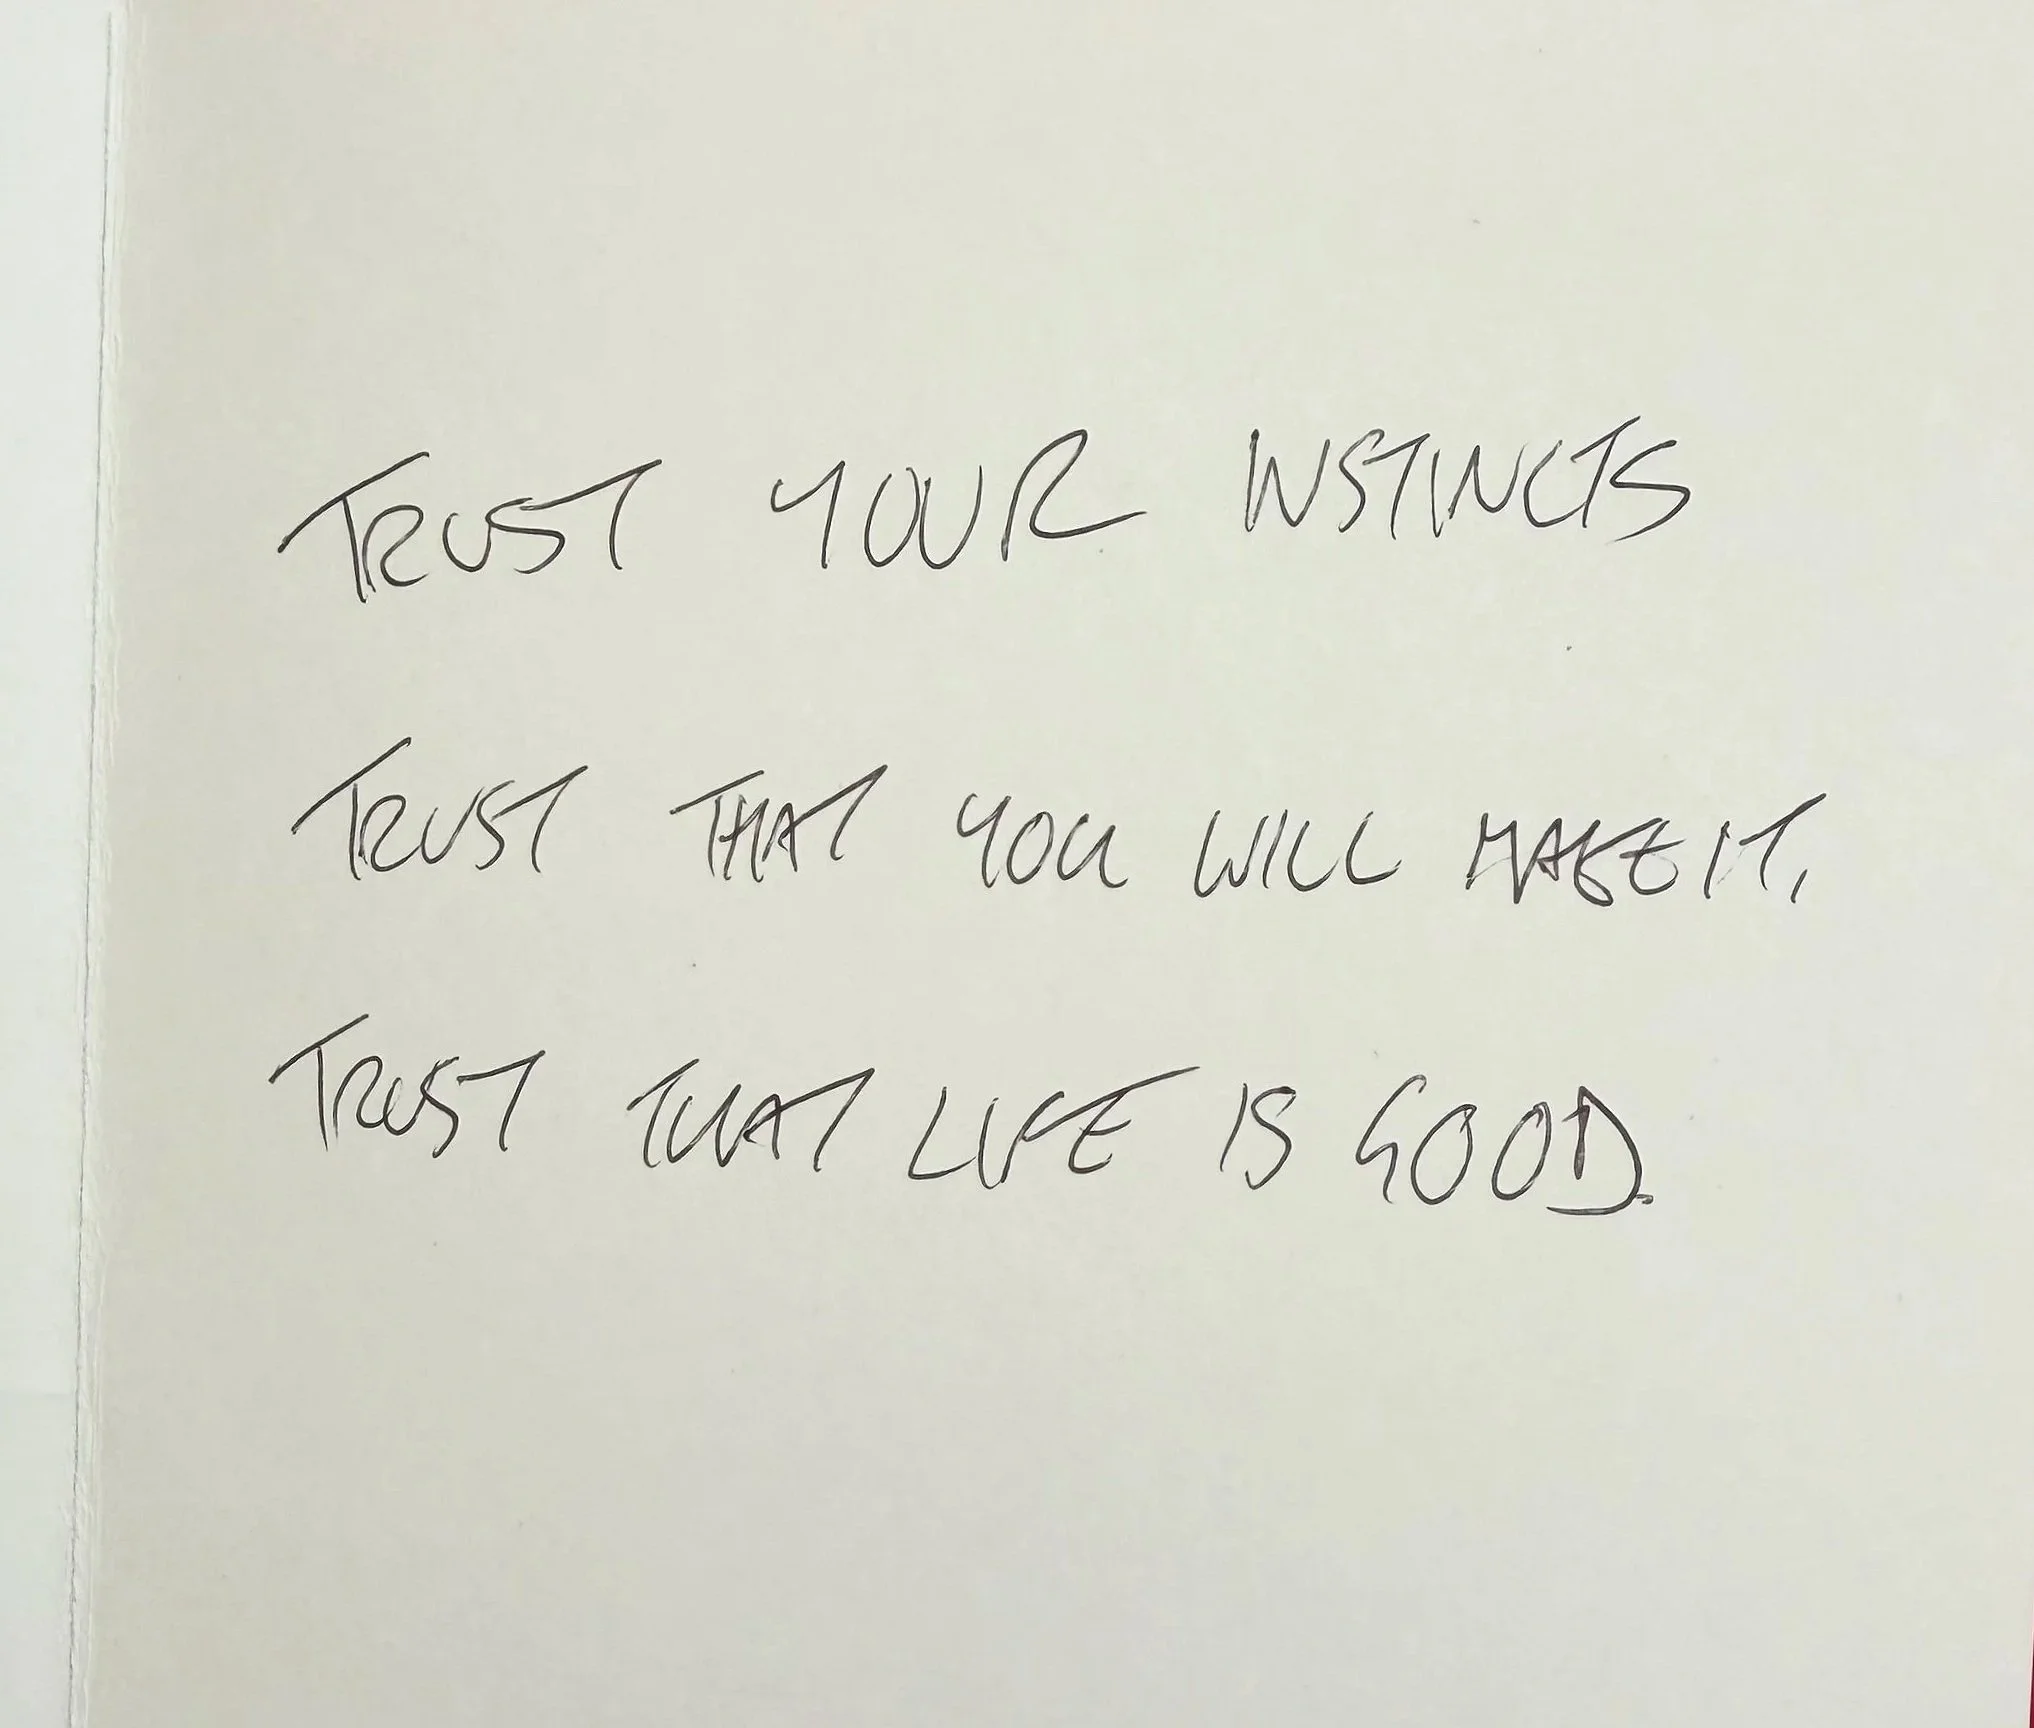 TRUST YOUR INSTINCTS
TRUST THAT YOU WILL MAKE IT,
TRUST THAT LIFE IS GOOD.